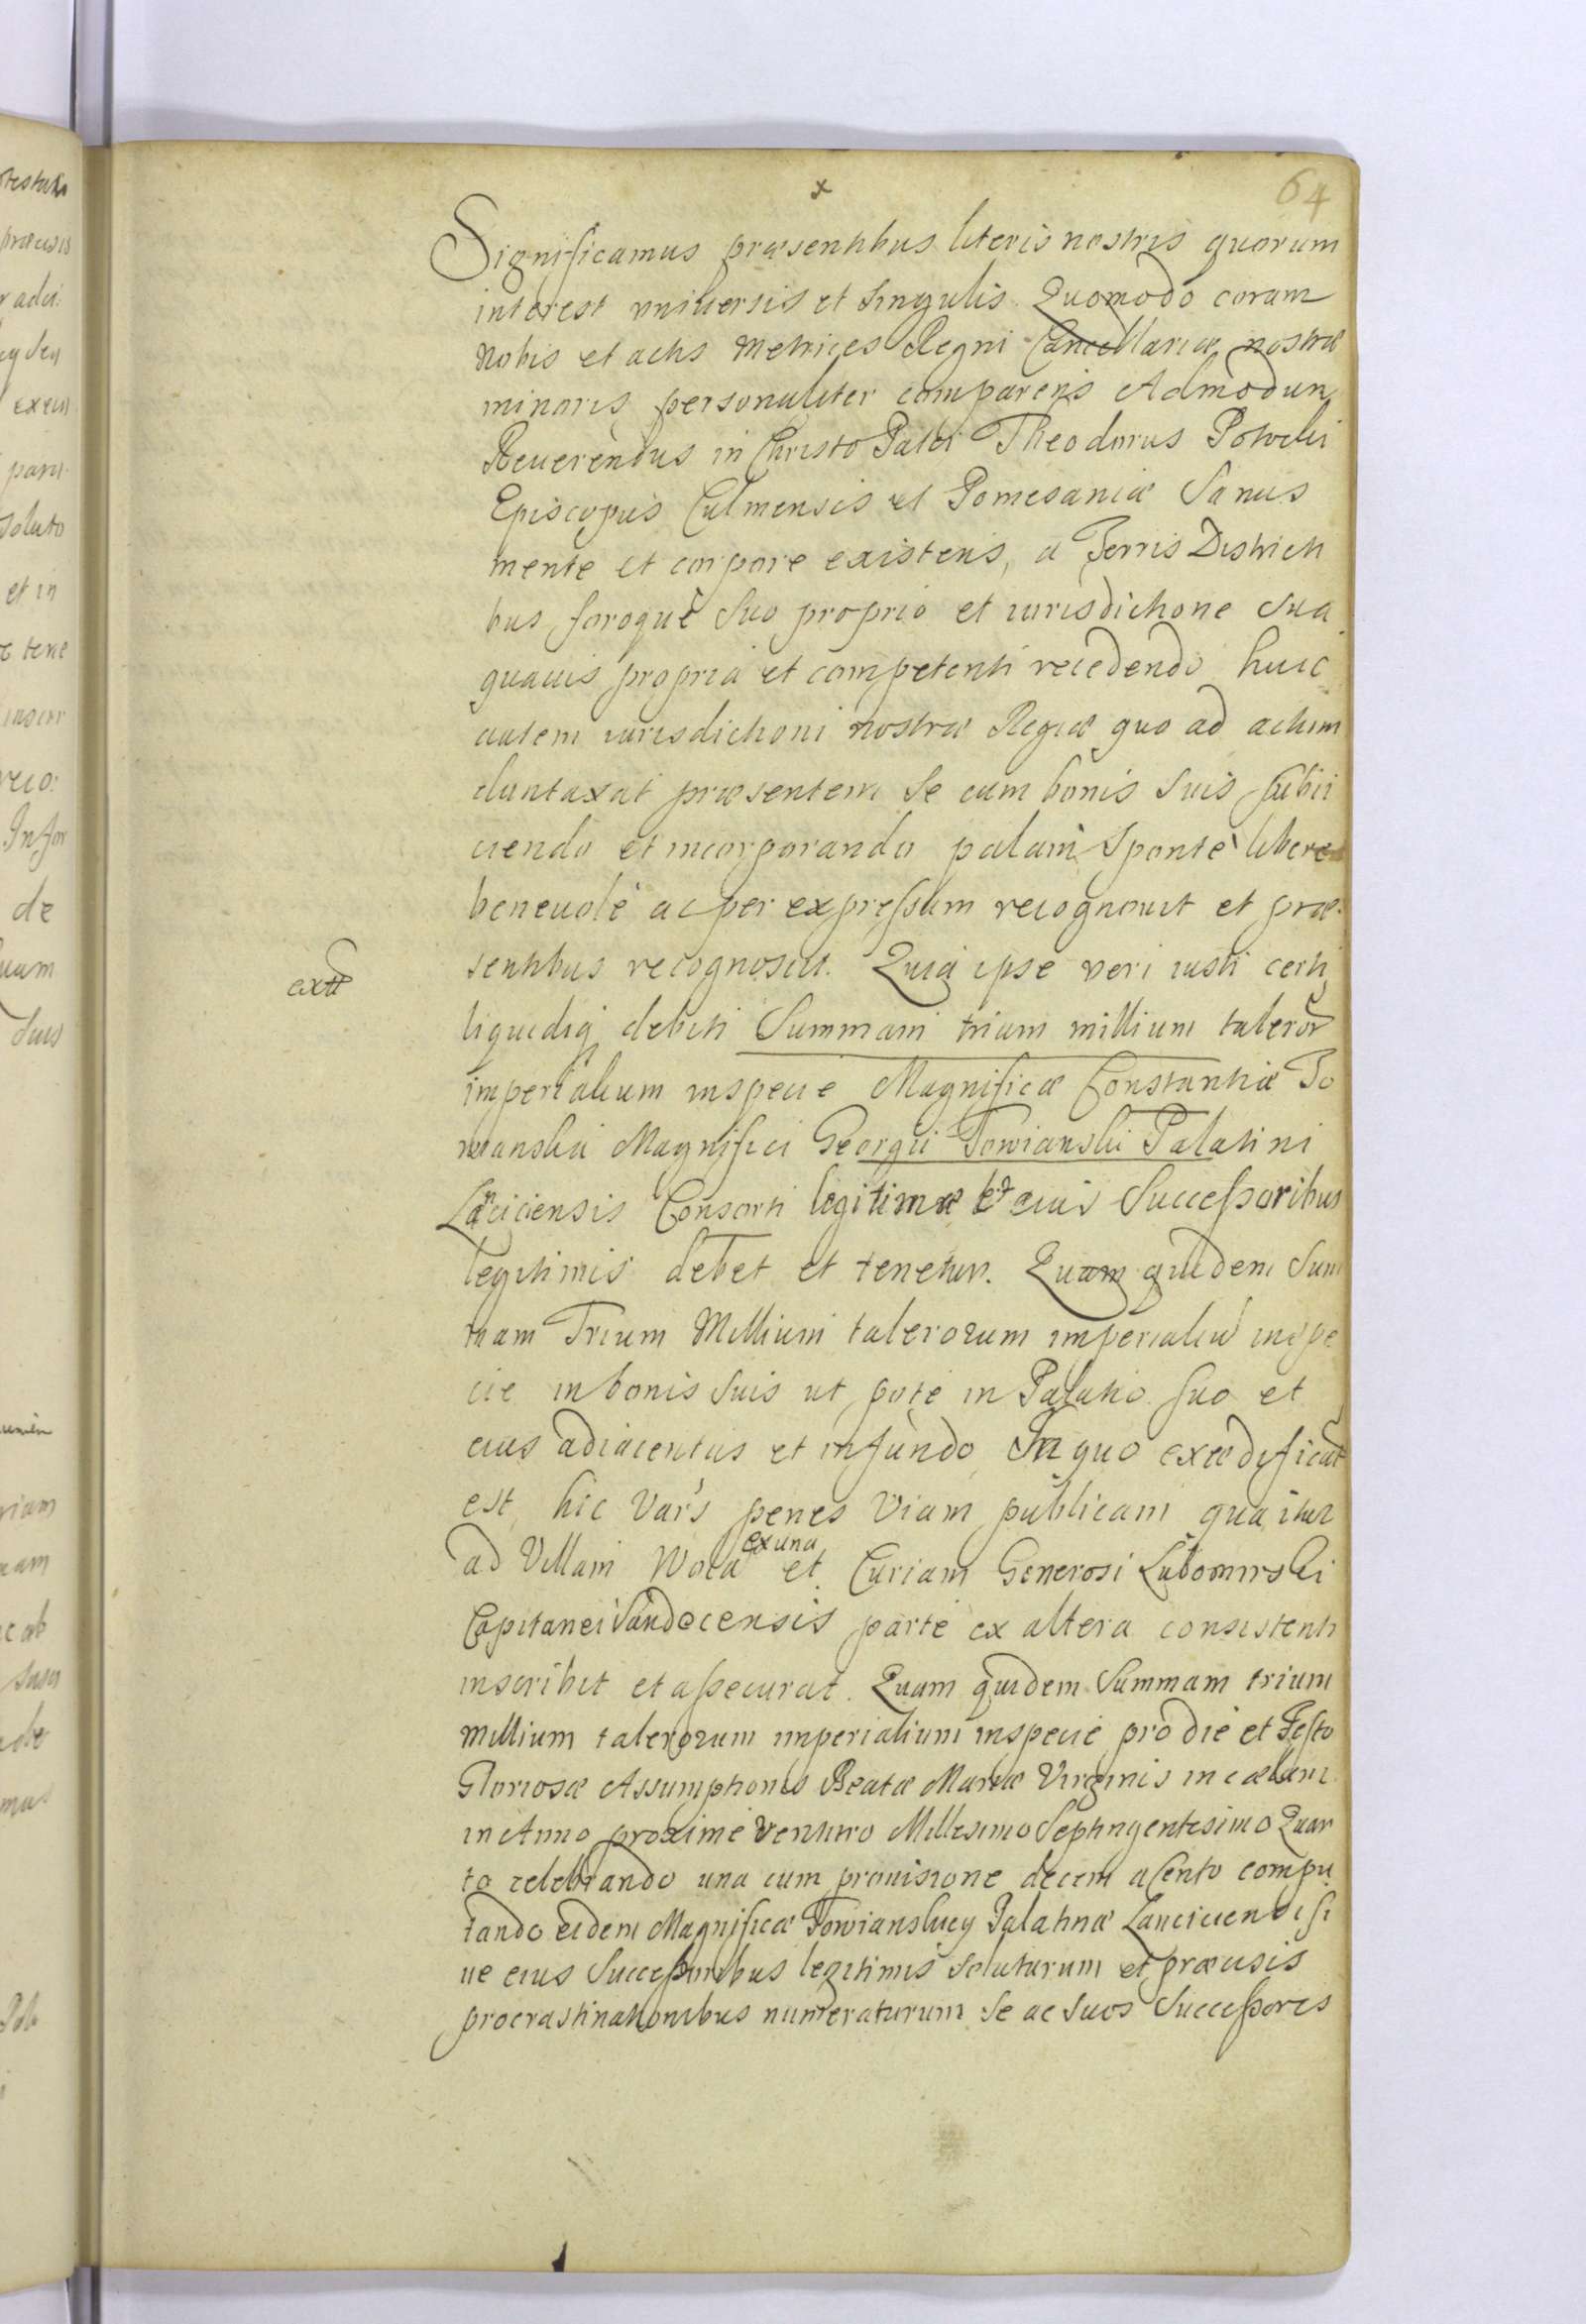 64
x
Significamus præsentibus literis nostris quorum
interest vniuersis et singulis. Quomodo coram
Nobis et actis Metrices Regni Cancellariæ nostræ
minoris personaliter comparens Admodum
Reuerendus in Christo Pater Theodorus Potocki
Episcopus Culmensis et Pomesaniæ Sanus
mente et corpore existens, a Terris Districti
bus foroque suo proprio et iurisdictione sua
quauis propria et competenti recedendo huic
autem iurisdictioni nostræ Regiæ quo ad actum
duntaxat præsentem se cum bonis suis subii
ciendo et incorporando palam sponte libere
beneuole ac per expressum recognouit et præ
sentibus recognoscit. Quia ipse veri iusti certi
extt
liquidiq debiti Summam trium millium taleror
imperialium inspecie Magnificæ Constantiæ To
wianskii Magnifici Georgii Towianski Palatini
Lanciciensis Consorti legitimæ et eius Successoribus
legitimis debet et tenetur. Quam quidem Sum
mam Trium Millium talerorum imperialiu inspe
cie in bonis suis ut pote in Palatio suo et
eius adiacentiis et in fundo In quo exædificat
est hic Vars penes Viam publicam qua itur
ad Villam Wola ex una et Curiam Generosi Lubomirski
Capitanei Sandecensis parte ex altera consistenti
inscribit et assecurat. Quam quidem Summam trium
millium talerorum imperialium inspecie pro die et Festo
Gloriosæ Assumptionis Beatæ Mariæ Virginis in cælum
in Anno proxime venturo Millesimo Septingentesimo Quar
to celebrando una cum prouisione decem a Cento compu
tando eidem Magnificæ Towianskiey Palatinæ Lanciciensi si
ue eius Successoribus legitimis soluturum et præcisis
procrastinationibus numeraturum se ac suos Successores